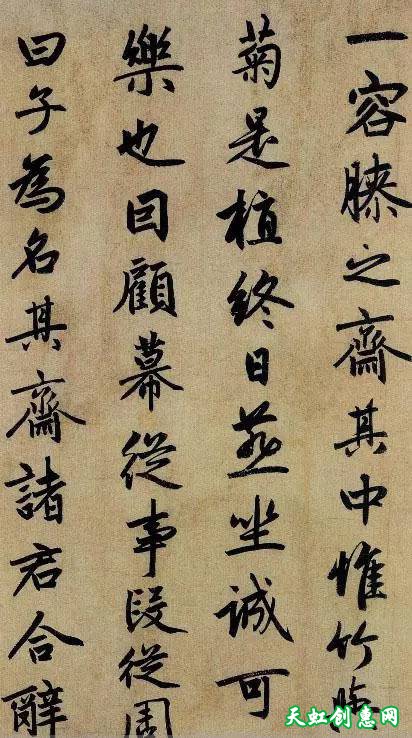 一容膝之齋其中惟竹
菊是植終日燕坐誠可
樂也回顧幕從事段從周
曰子為名其齋諸君合辭
天虹创惠网